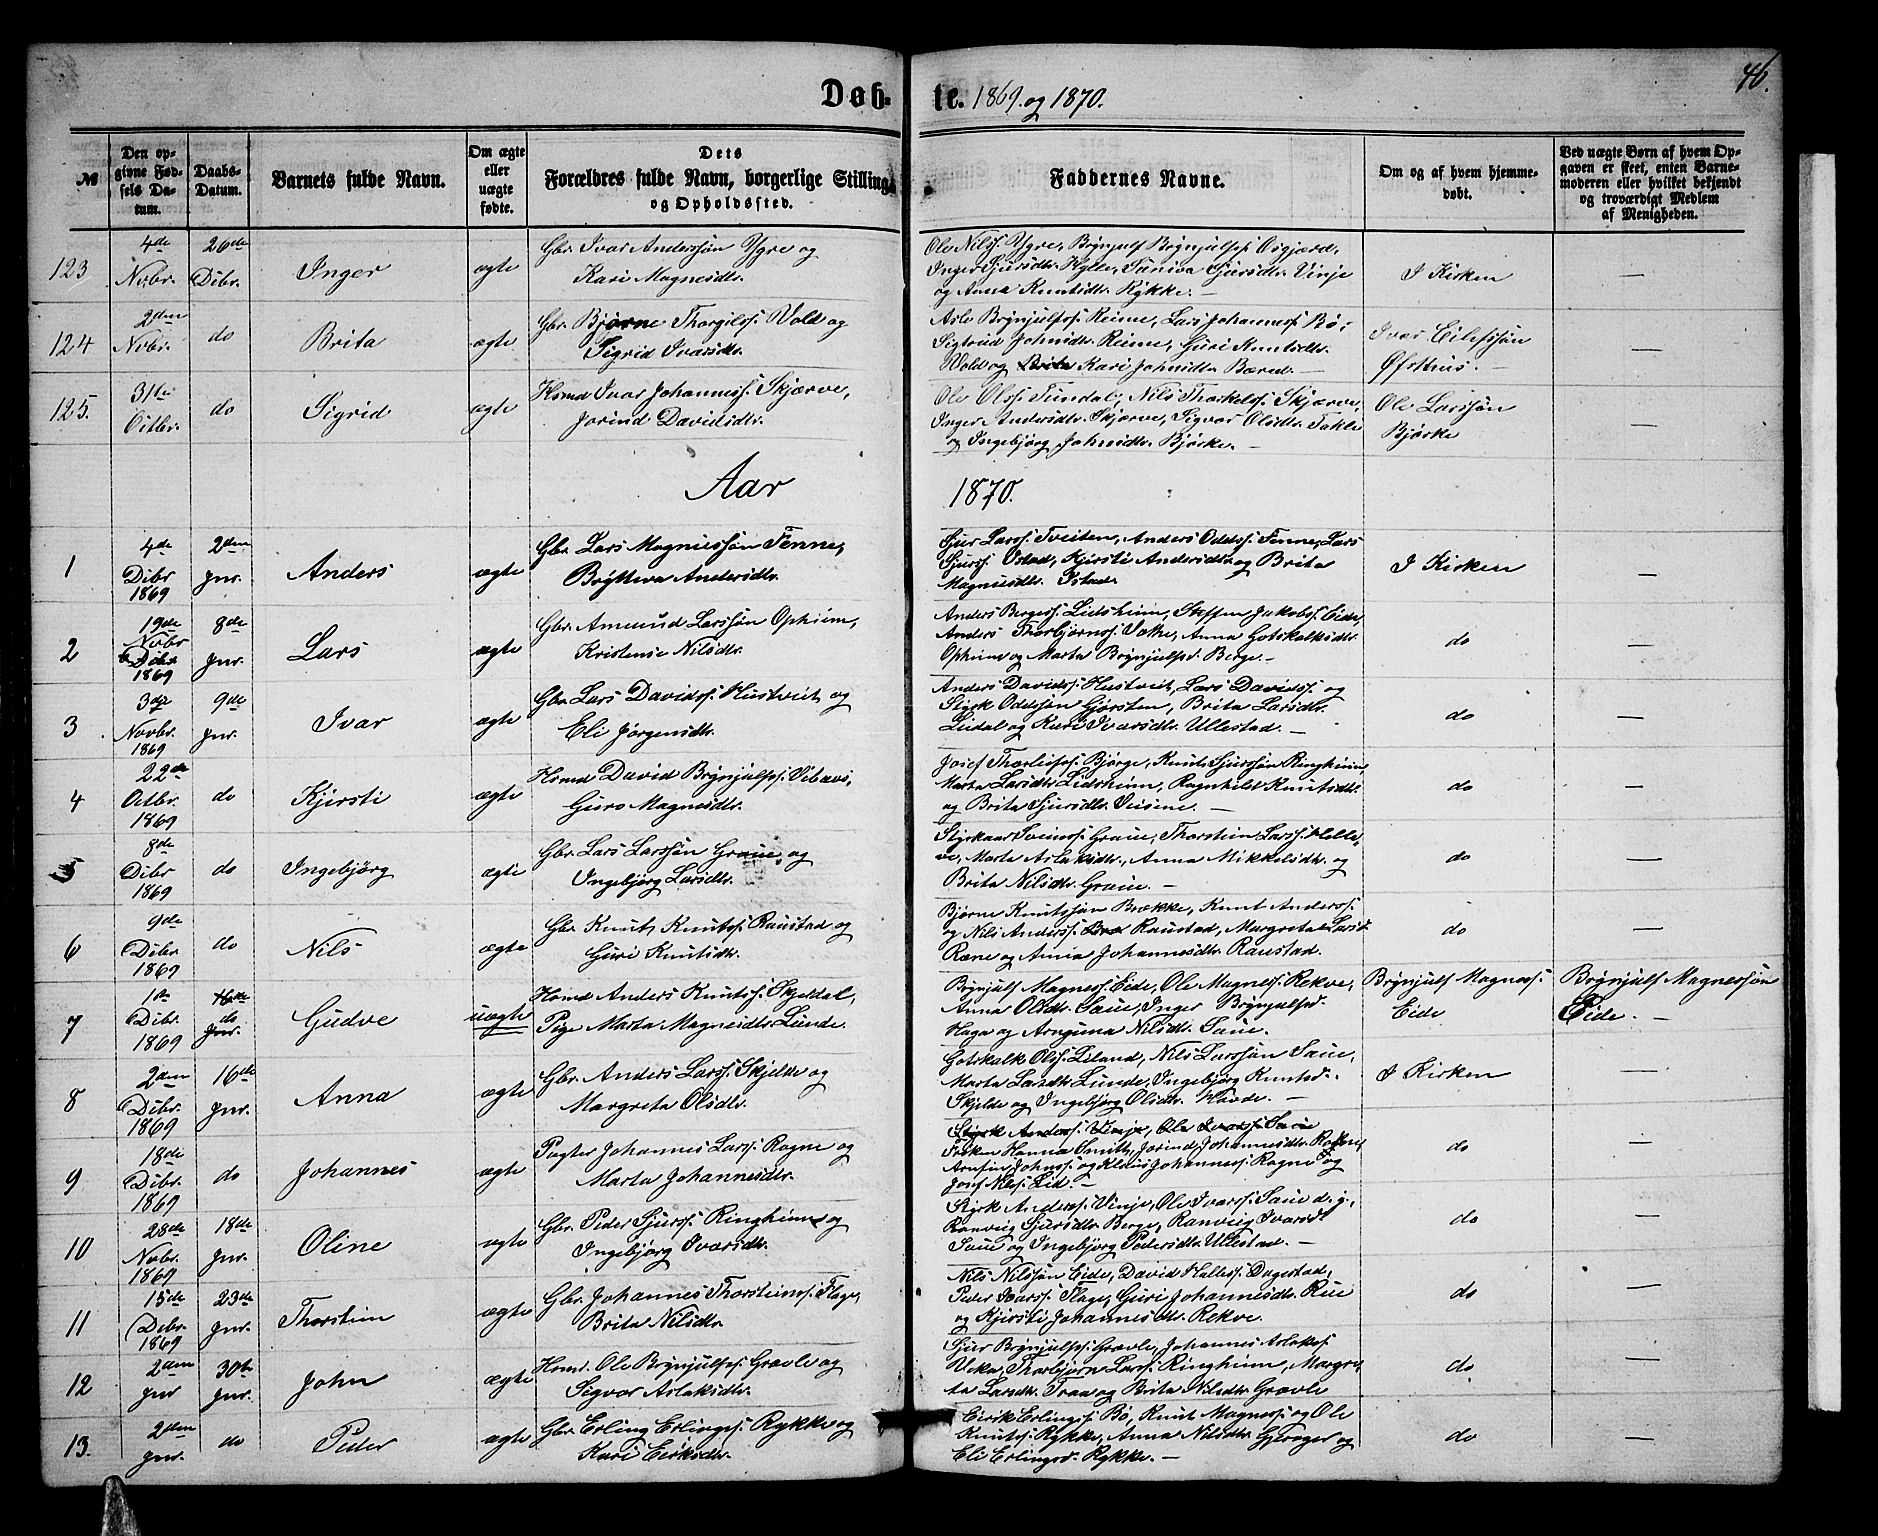 Døb-
te. 1869. og 1870.
46.
№
Den op-
givne Fød-
sels Da-
tum.
Daabs-
Datum.
Barnets fulde Navn.
Om ægte
eller
uægte
fødte.
Dets
Forældres fulde Navn, borgerlige Stilling
og Opholdssted.
Faddernes Navne.
Om og af hvem hjemme-
døbt.
Ved uægte Børn af hvem Op-
gaven er skeet, enten Barne-
moderen eller hvilket bekjendt
og troværdigt Medlem
af Menigheden.
123
4de
Novbr.
26de
Dibr.
Inger
ægte
Gbr. Ivar Anderssøn Ygre og
Kari Magnesdtr.
Ole Nilss. Ygre, Brynjulf Brynjulfs. Osgjærd,
Inger Sjursdtr. Hylle, Suniva Sjursdtr. Vinje
og Anna Knutsdtr. Rykke. —
I Kirken
—
124
2den
Novbr.
do
Brita
ægte
Gbr. Bjørne Thorgilss. Vold og
Sigrid Ivarsdtr.
Asle Brynjulfss. Reime, Lars Johanness. Bø,
Sigtrud Johnsdtr. Reime, Guri Knutsdtr.
Vold og Brita Kari Johnsdtr. Bærd. —
Ivar Eilefssøn
Øfsthus. —
—
125.
31te
Octbr.
do
Sigrid
ægte
Hsmd Ivar Johanness. Skjærve,
Jorind Davidsdtr.
Ole Olss. Tundal, Nils Thorkelss. Skjærve,
Inger Andersdtr. Skjærve, Sigvor Olsdtr. Takle
og Ingebjørg Johnsdtr. Bjørke. —
Ole Larssøn
Bjørke
—
Aar
1870.
1
4de
Dibr
1869
2den
Jnr.
Anders
ægte
Gbr. Lars Magnussøn Fenne,
Brytteva Andersdtr.
Sjur Larss. Tveiten, Anders Oddss. Fenne, Lars
Sjurss. Istad, Kjersti Andersdtr. og Brita
Magnusdtr. Istad.
I Kirken
—
2
19de
Novbr
Dibr
1869
8de
Jnr.
Lars
ægte
Gbr. Amund Larssøn Opheim,
Kristense Nilsdtr.
Anders Bergess. Lidsheim, Steffen Jakobss. Eide,
Anders Thorbjørnss. Takle, Anna Gotskalksdtr.
Opheim og Marta Brynjulfsd. Berge. —
do
—
3
3die
Novbr.
1869
9de
Jnr.
Ivar
ægte
Gbr. Lars Davidss. Hustveit og
Eli Jørgensdtr.
Anders Davidss. Hustveit, Lars Davidss. og
Styrk Oddssøn Gjørsten, Brita Larsdtr.
Lidal og Kari Ivarsdtr. Ullestad. —
do
—
4
22de
Octbr.
1869
do
Kjersti
ægte
Hsmd David Brynjulfss.
Guro Magnesdtr.
Josef Thorleifss. Bjørge, Knut Sjurssøn Ringheim,
Marta Larsdtr. Lidsheim, Ragnhild Knutsdtr.
og Brita Sjursdtr. Veisene. —
do
—
5
8de
Dibr
1869
do
Ingebjørg
ægte
Gbr. Lars Larssøn Graue, og
Ingebjørg Larsdtr.
Styrkaar Sveinss. Graue, Thorstein Larss. Helle
ve, Marta Aslaksdtr., Anna Mikkelsdtr. og
Brita Nilsdtr. Graue. —
do
—
6
9de
Dibr
1869
do
Nils
ægte
Gbr. Knut Knutss. Raustad og
Guri Knutsdtr.
Bjørne Knutssøn Brække, Knut Anderss.
og Nils Anderss. Raustad, Margreta Larsd.
Rene og Anna Johannesdtr. Raustad.
do
—
7
1ste
Dibr.
1869
16de
do
Jnr.
Gudve
uægte
Hsmd Anders Knutss. Skjeldal,
Pige Marta Magnesdtr. Lunde.
Brynjulf Magness. Eide, Ole Magness. Rekve,
Anna Olsdtr. Saue, Inger Brynjulfsd.
Haga og Arnguna Nilsdtr. Saue.
Brynjulf Magness.
Eide
Brynjulf Magnessøn
Eide. —
8
2den
Dibr.
1869
16de
Jnr.
Anna
ægte
Gbr. Anders Larss. Skjelde og
Margreta Olsdtr.
Gotskalk Olss. Liland, Nils Larssøn Saue,
Marta Larsdtr. Lunde, Ingebjørg Knutsd.
Skjelde og Ingebjørg Olsdtr. Havde. —
I Kirken
—
9
18de
Dibr.
1869
do
Johannes
ægte
Pagter Johannes Larss. Rogne og
Marta Johannesdtr.
Styrk Anderss. Vinje, Ole Ivarss. Saue
Frøken Hanna Smitt, Jorind Johannesdtr. Rogne,
Arnfin Johnss. og Klaus Johanness. Rogne og
Josef Nilss. Lid. —
do
—
10
28de
Novbr.
1869
18de
Jnr.
Oline
ægte
Gbr. Peder Sjurss. Ringheim og
Ingebjørg Ivarsdtr.
Styrk Anderss. Vinje, Ole Ivarss. Saue d. y.,
Ranveig Sjursdtr. Berge, Ranveig Ivarsd.
Saue og Ingebjørg Pedersdtr. Ullestad. —
do
—
11
15de
Debr.
1869
23de
Jnr.
Thorstein
ægte
Gbr. Johannes Thorsteinss. Flage,
Brita Nilsdtr.
Nils Nilssøn Eide, David Helless. Dagestad,
Peder Ivarss. Flage, Guri Johannesdtr. Rue
og Kjersti Johannesdtr. Rekve.
do
—
12
2den
Jnr
30te
Jnr.
John
ægte
Hsmd. Ole Brynjulfss. Grøvle og
Sigvor Aslaksdtr.
Sjur Brynjulfss. Grøvle, Johannes Aslakss.
Veka, Thorbjørn Larss. Ringheim, Margre
ta Larsdtr. Traa og Brita Nilsdtr. Grøvle
do.
—
13.
2den
Jnr.
do
Peder
ægte
Gbr. Erling Erlingss. Rykke og
Kari Eiriksdtr.
Eirik Erlingss. Bø, Knut Magness. og Ole
Knutss. Rykke, Anna Nilsdtr. Gjerager og
Eli Erlingsd. Rykke. —
do
—